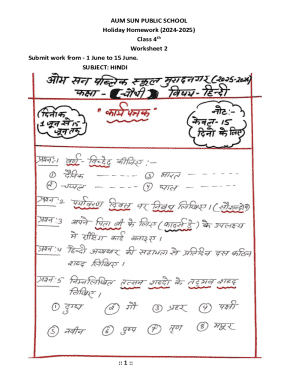 AUM SUN PUBLIC SCHOOL
Holiday Homework (2024-2025)
Class 4th
Worksheet 2
Submit work from - 1 June to 15 June.
SUBJECT: HINDI
ओम सन पब्लिक स्कूल मुरादनगर (2025-2026)
कक्षा - चौथी विषय- हिन्दी
दिनांक 1 जून से 15 जून तक
"कार्य पत्रक"
नोट:- केवल-15 दिनों के लिए
प्रश्न:1 वर्ण- विच्छेद कीजिए :-
① दैनिक ③ भारत
② चप्पल ④ प्यास
प्रश्न:2 पर्यावरण दिवस पर निबंध लिखिए।
प्रश्न:3 अपने पिता जी के लिए (फादर्स डे) के उपलक्ष्य
में ग्रीटिंग कार्ड बनाइए।
प्रश्न:4 हिन्दी अखबार की सहायता से प्रतिदिन दस कठिन
शब्द लिखिए।
प्रश्न:5 निम्नलिखित तत्सम शब्दों के तद्भव शब्द
लिखिए।
① दुग्ध ② गौ ③ प्रहर ④ पक्षी
⑤ नवीन ⑥ पुष्प ⑦ तृण ⑧ मयूर
:: 1 ::